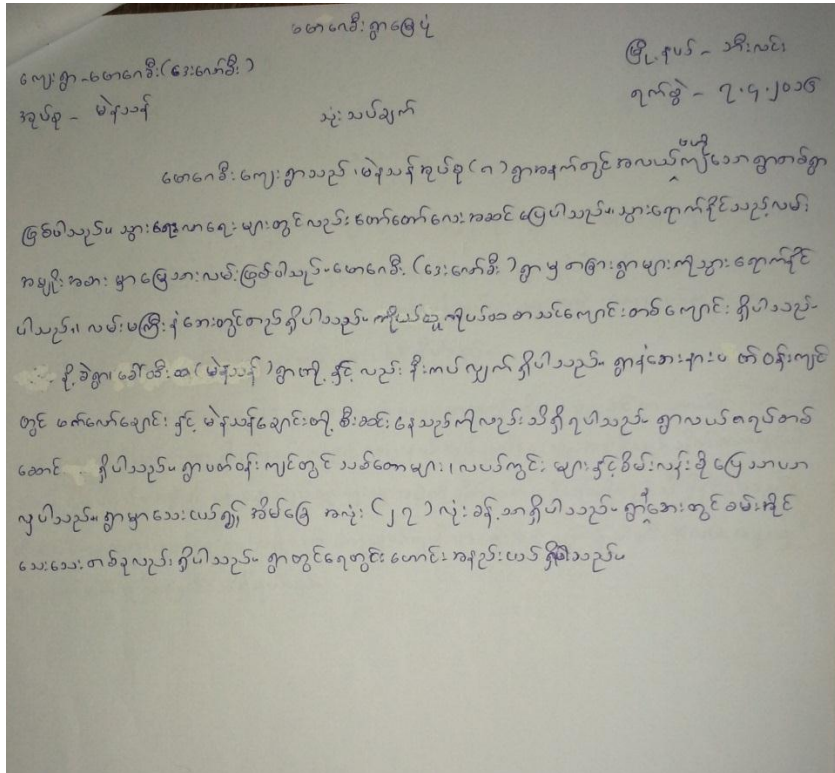 မောဂေခီးရွာမြေပုံ
မြို့နယ် - ဘီးလင်း
ကျေးရွာ - မောဂေခီး (ဒေးလော်ခီး)
ရက်စွဲ - ၇.၄.၂၀၁၆
အုပ်စု - မဲနယန်
သုံးသပ်ချက်
မောဂေခီးကျေးရွာသည်၊ မဲနယန်အုပ်စု (၈) ရွာအနက်တွင် အလယ်၌ကျသော ရွာတစ်ရွာ
ဖြစ်ပါသည်။ သွားရေးလာရေးများတွင်လည်း တော်တော်လေးအဆင်ပြေပါသည်။ သွားရောက်နိုင်သည့်လမ်း
အမျိုးအစားမှာ မြေသားလမ်းဖြစ်ပါသည်။ မောဂေခီး (ဒေးလော်ခီး) ရွာမှ တခြားရွာများကိုသွားရောက်နိုင်
ပါသည်။ လမ်းမကြီးနံဘေးတွင်တည်ရှိပါသည်။ ကိုယ်ထူကိုယ်ထ စာသင်ကျောင်းတစ်ကျောင်း ရှိပါသည်။
နို့ခဲရွာ၊ ခေါ်သီးထ (မဲနယန်) ရွာတို့နှင့်လည်း နီးကပ်လျှက်ရှိပါသည်။ ရွာနံဘေးနားပတ်ဝန်းကျင်
တွင် ဖက်လော်ချောင်းနှင့် မဲနယန်ချောင်းတို့ စီးဆင်းနေသည်ကိုလည်းသိရှိရပါသည်။ ရွာလယ်စရပ်တစ်
ဆောင် ရှိပါသည်။ ရွာပတ်ဝန်းကျင်တွင် သစ်တောများ၊ လယ်ကွင်းများနှင့်စိမ်းလန်းစိုပြေသာယာ
လှပါသည်။ ရွာမှာသေးငယ်၍ အိမ်ခြေ အလုံး (၂၇) လုံးခန့်သာရှိပါသည်။ ရွာနံဘေးတွင် စမ်းအိုင်
သေးသေးတစ်ခုလည်းရှိပါသည်။ ရွာတွင်ရေတွင်းဟောင်းအနည်းငယ်ရှိပါသည်။